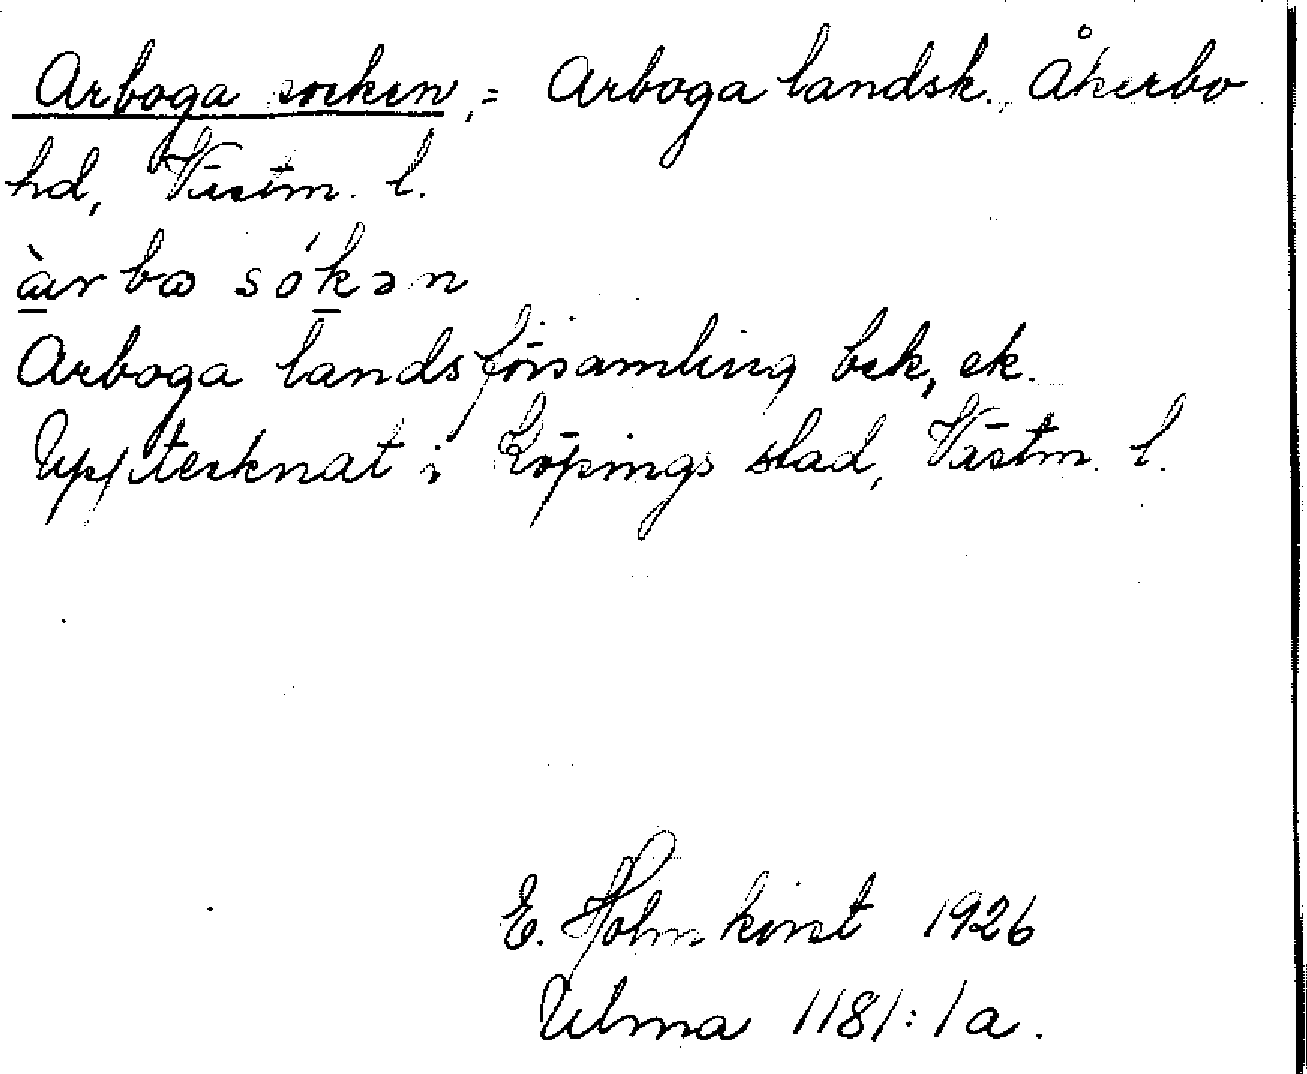 Arboga socken, = Arboga landsk. Åkerbo
hd, Västm. l.
àrbɷ sókən
Arboga landsförsamling bek, ek.
Upptecknat i Köpings stad, Västm. l.
E. Holmkvist 1926
Ulma 1181:1a.